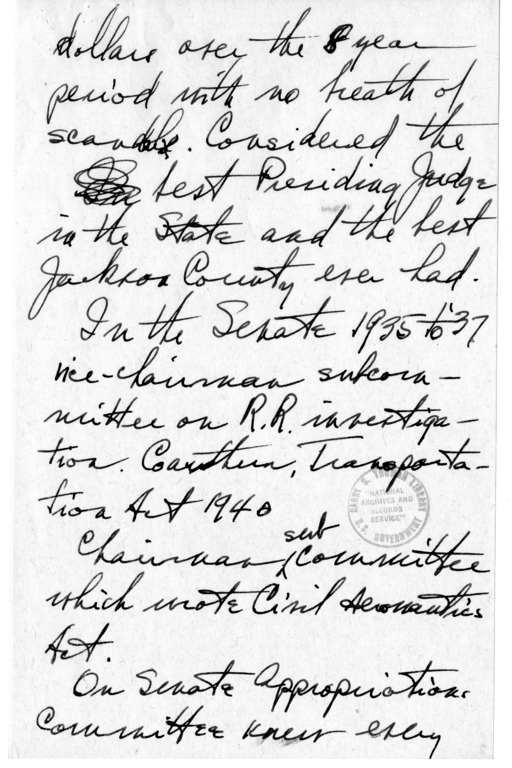 dollars over the 8 year
period with no breath of
scandal. Considered the
best Presiding Judge
in the State and the best
Jackson County ever had.
In the Senate 1935 to '37
vice-chairman subcom-
mittee on R.R. investiga-
tion. Coauthor, Transporta-
tion Act 1940
HARRY S. TRUMAN LIBRARY
"NATIONAL
ARCHIVES AND
RECORDS
SERVICE"
U.S. GOVERNMENT
sub
Chairman committee
which wrote Civil Aeronautics
Act.
On Senate Appropriations
Committee knew every